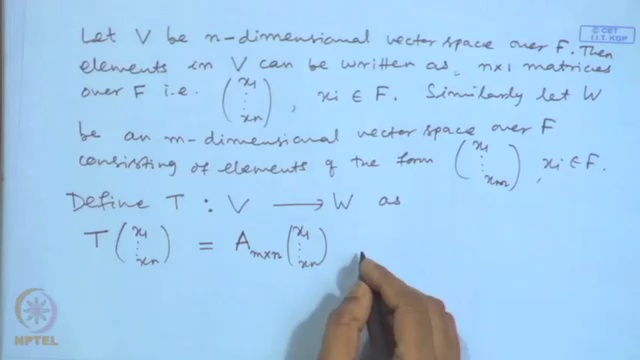 © CET
I.I.T. KGP
Let V be n-dimensional vector space over F. Then
elements in V can be written as n×1 matrices
over F i.e. (x1 ⋮ xn), xi ∈ F. Similarly let W
be an m-dimensional vector space over F
consisting of elements of the form (x1 ⋮ xm), xi ∈ F.
Define T : V → W as
T(x1 ⋮ xn) = A m×n (x1 ⋮ xn)
NPTEL